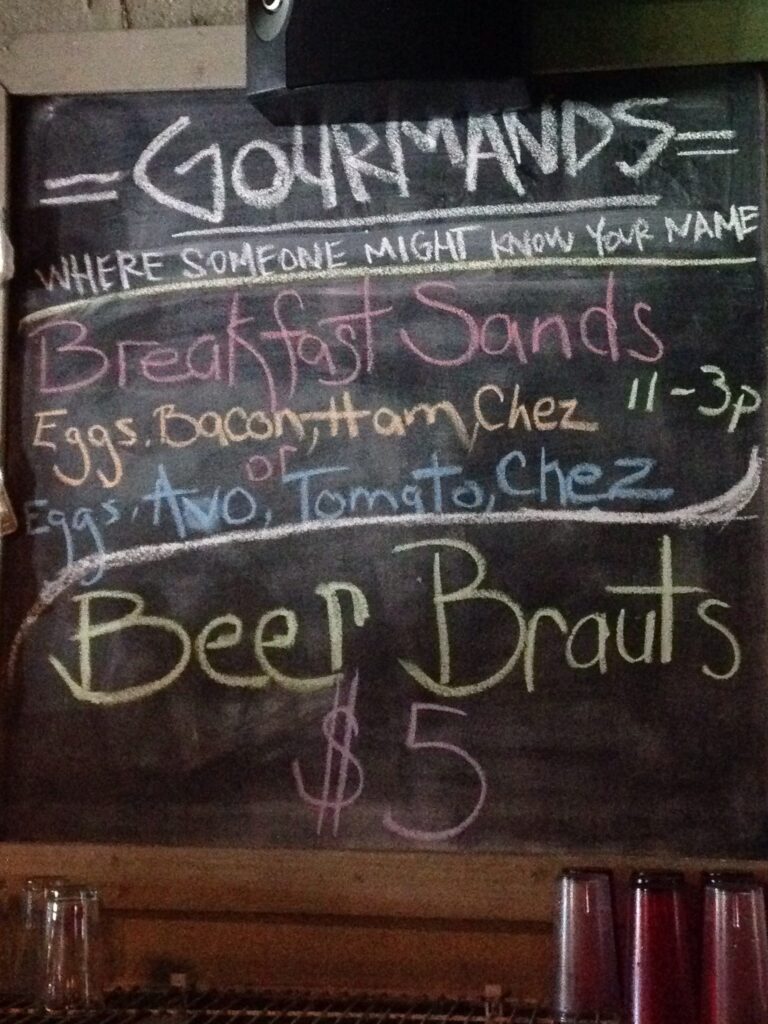 = GOURMANDS =
WHERE SOMEONE MIGHT KNOW YOUR NAME
Breakfast Sands
Eggs, Bacon, Ham, Chez 11-3p
or
Eggs, Avo, Tomato, Chez
Beer Brauts
$5